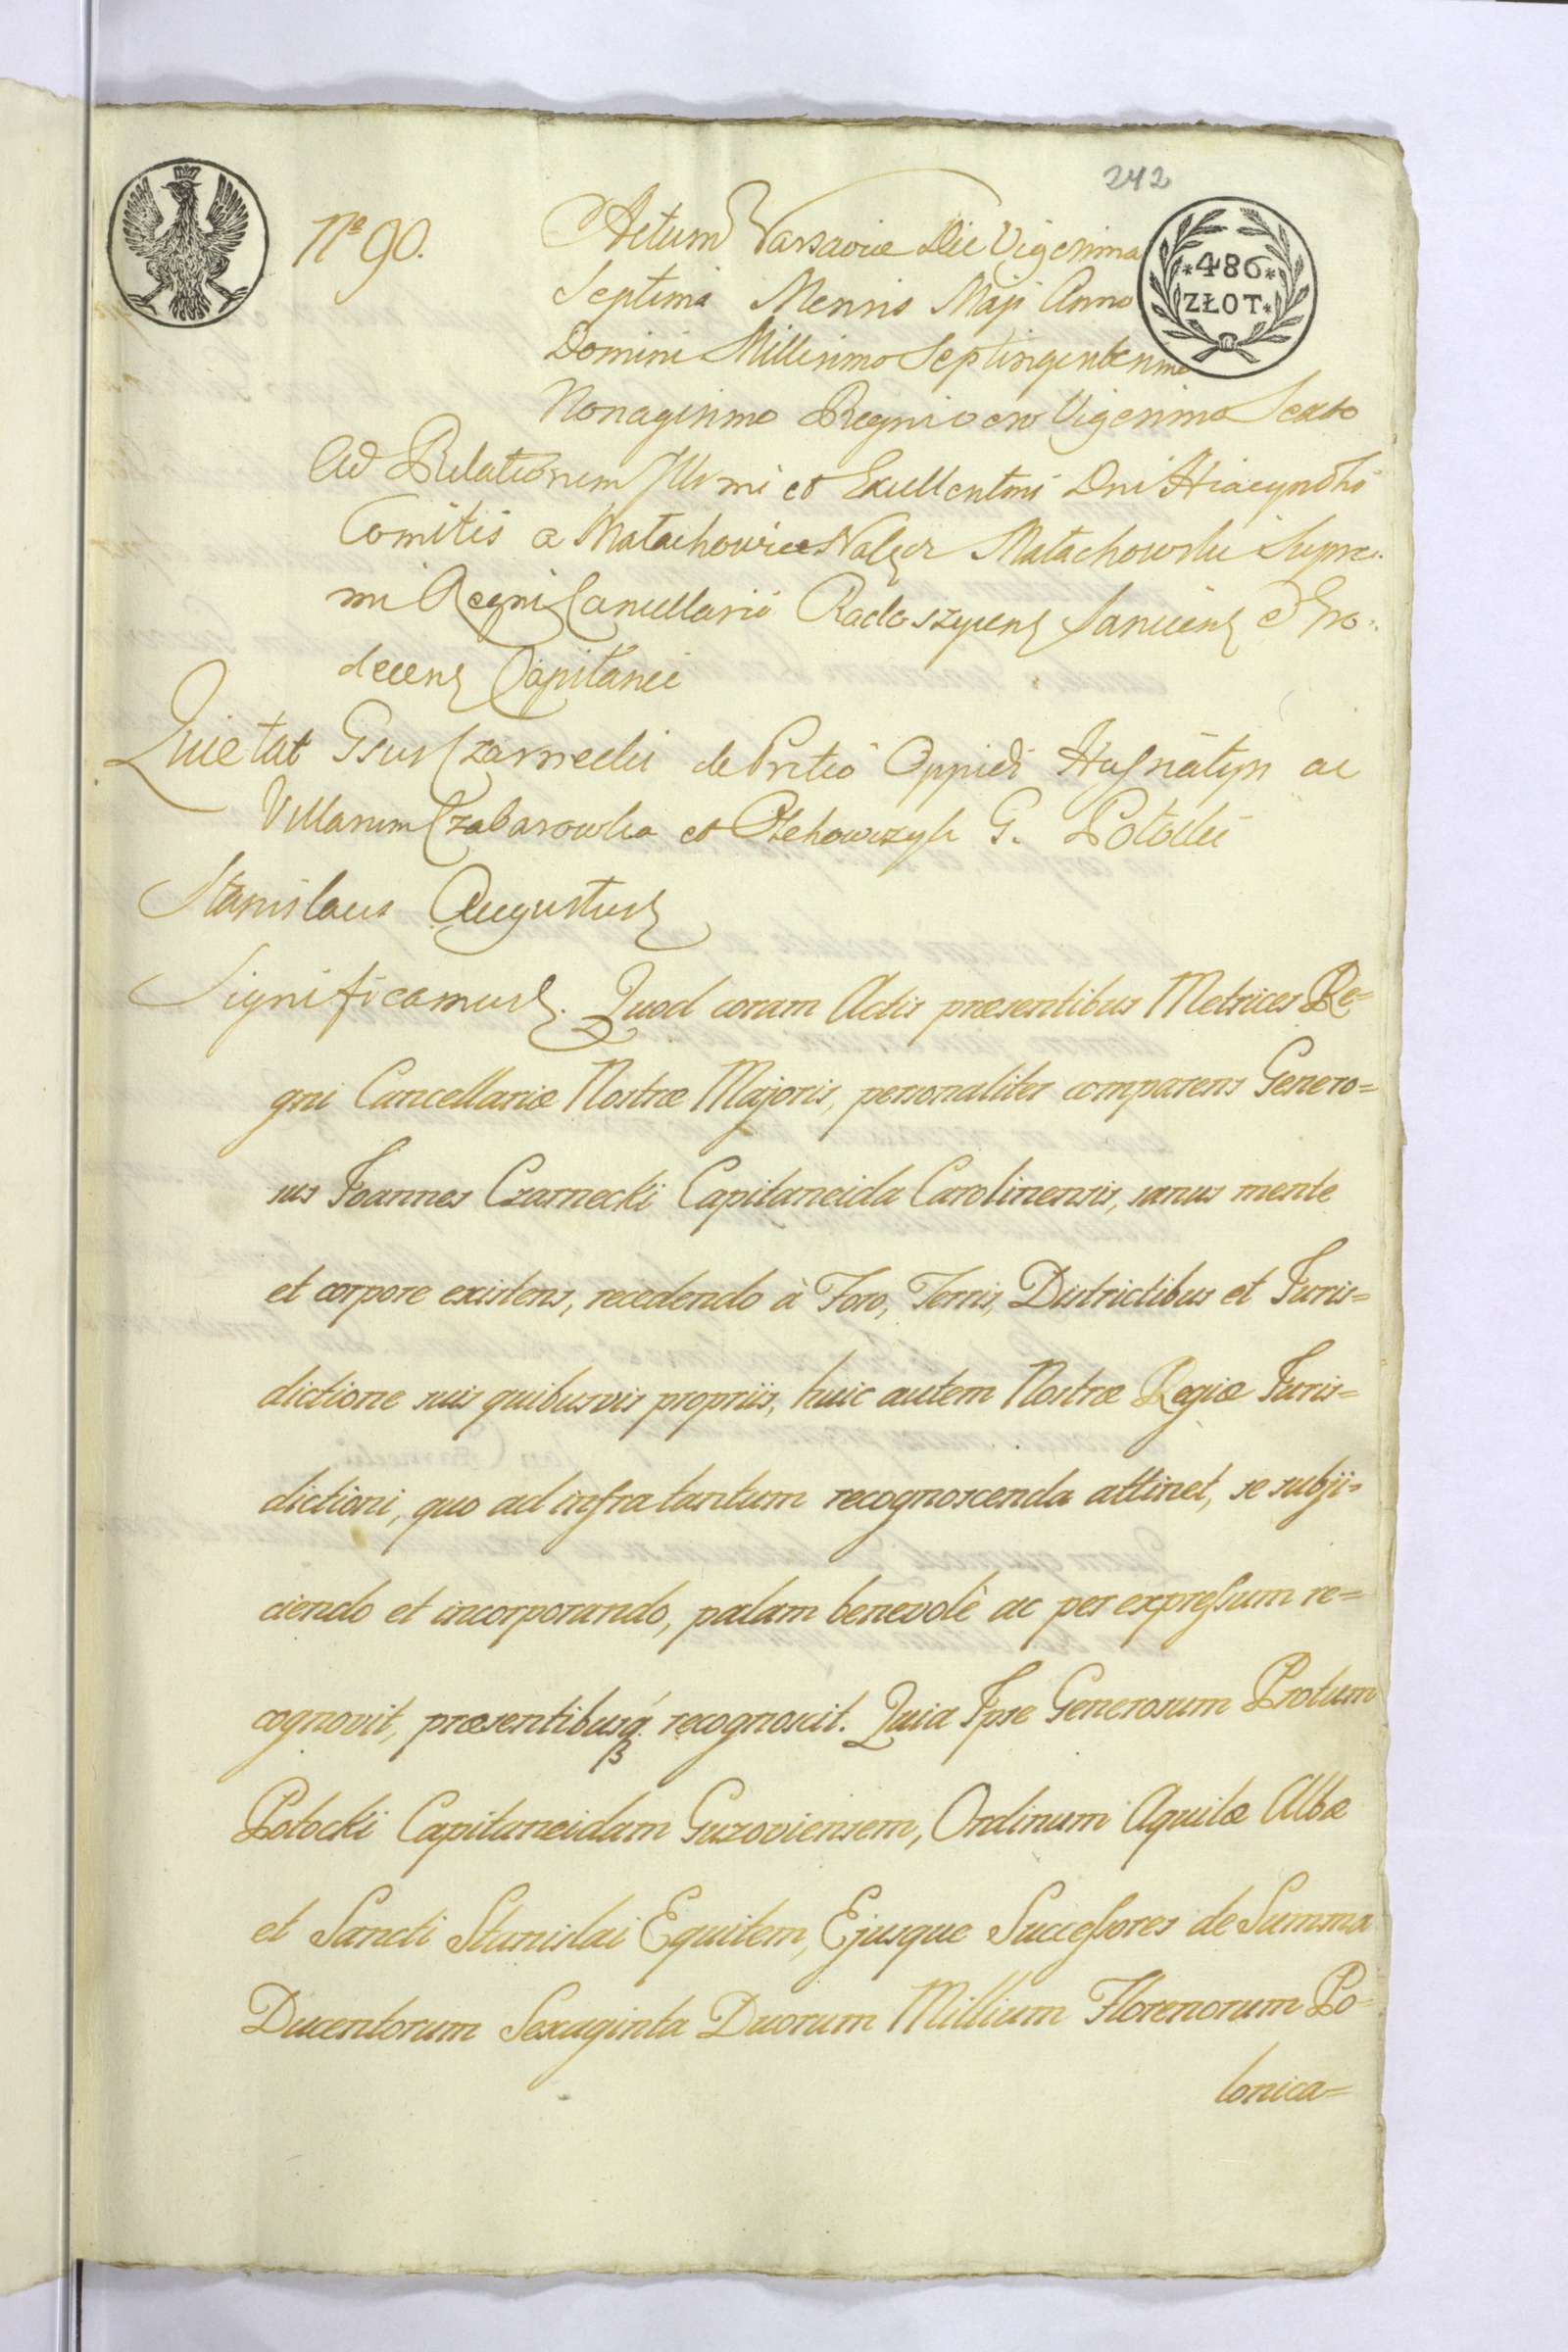 242
Nº 90.
*486*
ZŁOT*
Actum Varsaviæ Die Vigesima
Septima Mensis Maji Anno
Domini Millesimo Septingentesimo
Nonagesimo Regni vero Vigesimo Sexto
Ad Relationem Illrmi et Excellentmi Dni Hiacynthi
Comitis a Małachowice Nałęcz Małachowski Supre:
mi Regni Cancellarii Radoszycens Sanicens Gro:
decens Capitanei
Quietat Gsus Czarnecki de Pretio Oppidi Husiatyn ac
Villarum Czabarowka et Olchowczyk G. Potocki
Stanislaus Augustus
Significamus. Quod coram Actis præsentibus Metrices Re=
gni Cancellariæ Nostræ Majoris, personaliter comparens Genero=
sus Joannes Czarnecki Capitaneida Carolinensis, sanus mente
et corpore existens, recedendo à Foro, Terris, Districtibus et Juris=
dictione suis quibusvis propriis, huic autem Nostræ Regiæ Juris=
dictioni, quo ad infra tantum recognoscenda attinet, se subji=
ciendo et incorporando, palam benevolè ac per expressum re=
cognovit, præsentibusq. recognoscit. Quia Ipse Generosum Protum
Potocki Capitaneidam Guzoviensem, Ordinum Aquilæ Albæ
et Sancti Stanislai Equitem, Ejusque Successores de Summa
Ducentorum Sexaginta Duorum Millium Florenorum Po=
lonica=